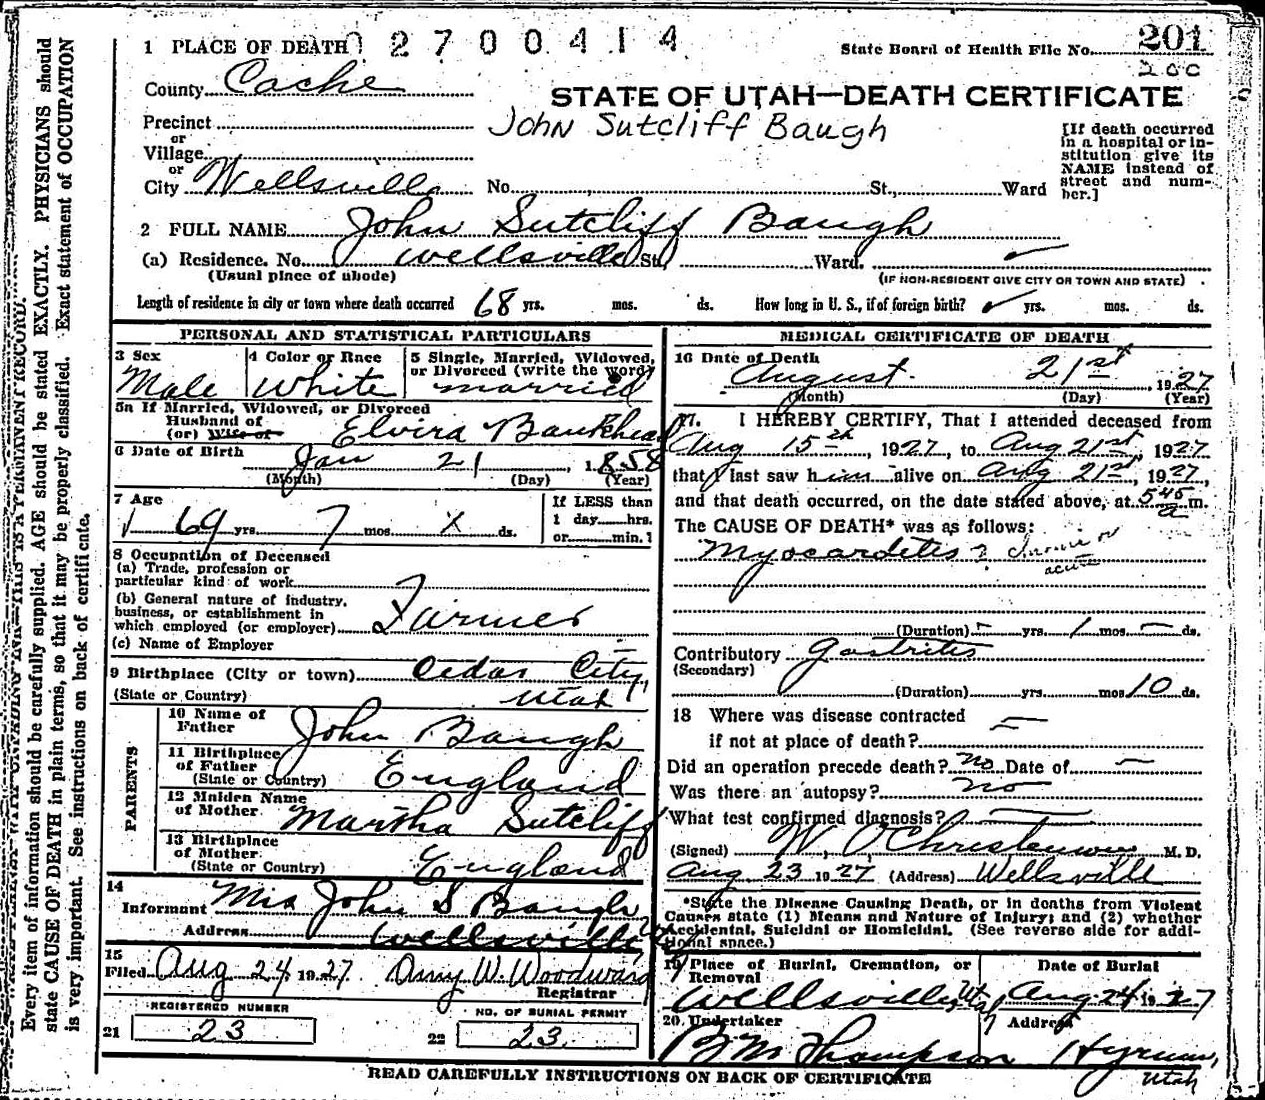 1 PLACE OF DEATH 2700414
State Board of Health File No. 201
200
County Cache
STATE OF UTAH—DEATH CERTIFICATE
Precinct
John Sutcliff Baugh
or
Village
or
City Wellsville No. St., Ward
[If death occurred
in a hospital or in-
stitution give its
NAME instead of
street and num-
ber.]
2 FULL NAME John Sutcliff Baugh
(a) Residence. No. Wellsville St., Ward.
(Usual place of abode) (IF NON-RESIDENT GIVE CITY OR TOWN AND STATE)
Length of residence in city or town where death occurred 68 yrs. mos. ds. How long in U. S., if of foreign birth? ✓ yrs. mos. ds.
PERSONAL AND STATISTICAL PARTICULARS
3 Sex
Male
4 Color or Race
White
5 Single, Married, Widowed,
or Divorced (write the word)
married
5a If Married, Widowed, or Divorced
Husband of
(or) Wife of Elvira Bankhead
6 Date of Birth
Jan 21, 1858
(Month) (Day) (Year)
7 Age
69 yrs. 7 mos. x ds.
If LESS than
1 day hrs.
or min.
8 Occupation of Deceased
(a) Trade, profession or
particular kind of work
(b) General nature of industry,
business, or establishment in
which employed (or employer) Farmer
(c) Name of Employer
9 Birthplace (City or town) Cedar City,
(State or Country) Utah
PARENTS
10 Name of
Father John Baugh
11 Birthplace
of Father
(State or Country) England
12 Maiden Name
of Mother Martha Sutcliff
13 Birthplace
of Mother
(State or Country) England
14
Informant Mrs John S Baugh
Address Wellsville
15
Filed Aug 24 1927. Amy W. Woodward
Registrar
REGISTERED NUMBER
21 23
NO. OF BURIAL PERMIT
22 23
MEDICAL CERTIFICATE OF DEATH
16 Date of Death
August 21st, 1927
(Month) (Day) (Year)
17. I HEREBY CERTIFY, That I attended deceased from
Aug 15th, 1927, to Aug 21st, 1927
that I last saw him alive on Aug 21st, 1927,
and that death occurred, on the date stated above, at 5 45 a m.
The CAUSE OF DEATH* was as follows:
Myocarditis ? chronic or
acute
(Duration) – yrs. 1 mos. – ds.
Contributory Gastritis
(Secondary)
(Duration) yrs. mos 10 ds.
18 Where was disease contracted
if not at place of death? –
Did an operation precede death? no Date of –
Was there an autopsy? no
What test confirmed diagnosis? –
(Signed) W. O Christensen M. D.
Aug 23 1927 (Address) Wellsville
*State the Disease Causing Death, or in deaths from Violent
Causes state (1) Means and Nature of Injury; and (2) whether
Accidental, Suicidal or Homicidal. (See reverse side for addi-
tional space.)
19 Place of Burial, Cremation, or
Removal
Wellsville, Utah
Date of Burial
Aug 24 1927
20 Undertaker
B M Thompson
Address
Hyrum,
Utah
READ CAREFULLY INSTRUCTIONS ON BACK OF CERTIFICATE
Every item of information should be carefully supplied. AGE should be stated EXACTLY. PHYSICIANS should
state CAUSE OF DEATH in plain terms, so that it may be properly classified. Exact statement of OCCUPATION
is very important. See instructions on back of certificate.